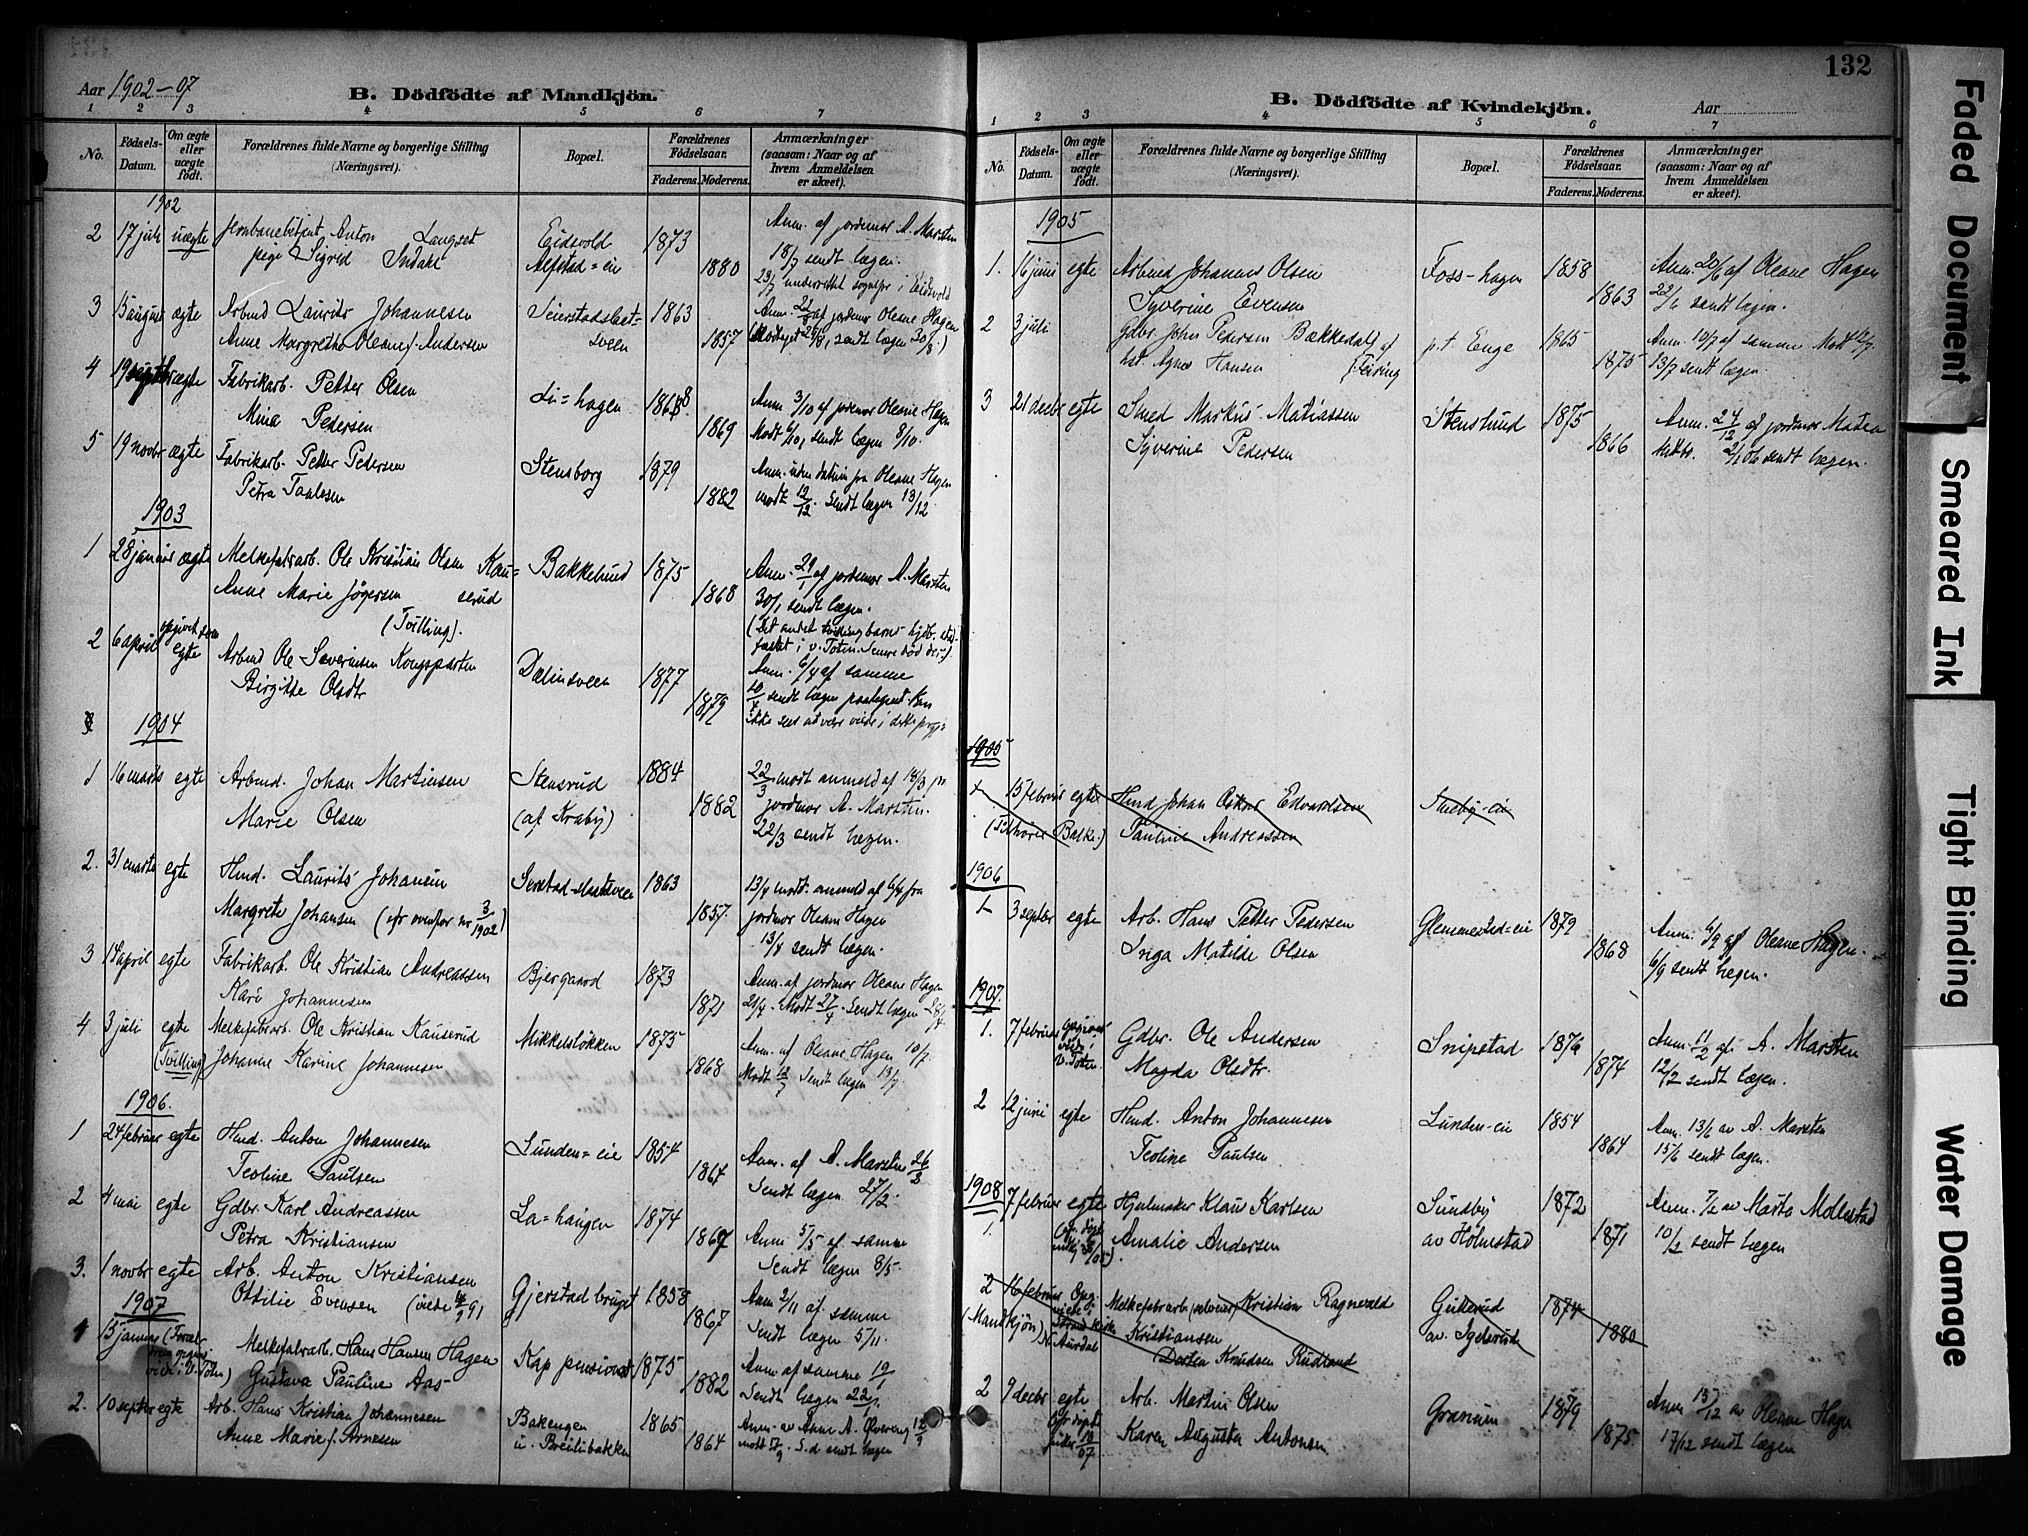 Aar 1902-07
B. Dödfödte af Mandkjön.
1 2 3 4 5 6 7
No.
Födsels-Datum.
Om ægte eller uægte födt.
Forældrenes fulde Navne og borgerlige Stilling (Næringsvei).
Bopæl.
Forældrenes Födselsaar.
Faderens. Moderens.
Anmærkninger (saasom: Naar og af hvem Anmeldelsen er skeet).
1902
2 17 juli uægte Jernbanebetjent Anton Langset Eidsvold 1873 Anm. af jordmor A. Marsten
pige Sigrid Indahl Alfstad=eie 1880 18/7 sendt lægen.
23/7 underrettet sognepr. i Eidsvold
3 5 august ægte Arbmd Laurits Johannesen Seierstadslaat= 1863 Anm. af jordmor Oleane Hagen
Anne Margrethe Oleane f. Andersen sveen 1857 sendt lægen 30/8.)
4 19 septbr ægte Fabrikarb. Petter Olsen Li=hagen 1868 Anm. 3/10 af jordmor Oleane Hagen
Mina Pedersen 1869 Modt 6/10, sendt lægen 8/10.
5 19 novbr ægte Fabrikarb. Petter Pedersen Stensborg 1879 Anm. uden datum fra Oleane Hagen
Petra Paulsen 1882 modt 12/12. Sendt lægen 13/12
1903
1 28 januar ægte Melkefabrarb. Ole Kristian Olsen Kau= Bakkelund 1875 Anm. 29/1 af jordmor A. Marsten
Anne Marie Jögersen serud 1868 30/1 sendt lægen.
(Tvilling). (Det andet tvillingbarns hjdb.
2 6 april opgivet som egte Arbmd Ole Severinsen Kongsparten Dælinsveen 1877 Anm. 6/4 af samme
Birgitte Olsdtr 1879 sendt lægen
1904
1 16 marts egte Arbmd. Johan Martinsen Stensrud 1884 22/3 modt anmeld af 18/3 fr
Marie Olsen (af Kraby) 1882 jordmor A. Marsten.
22/3 sendt lægen.
2. 31 marts egte Hmd. Laurits Johansen Seirstad-slaatsveen 1863 13/4 modt. anmeld af 6/4 fra
Margrete Johansen (cfr ovenfor nr 3/1902) 1857. jordmor Oleane Hagen
13/4 sendt lægen.
3 14 april egte Fabrikarb. Ole Kristian Andreassen Bjergaard 1873 Anm. af jordmor Oleane Hagen
Kari Johannesen 1871 21/4. Modt 27/4. Sendt lægen 28/4
4. 3 juli egte Melkefabrarb. Ole Kristian Kauserud Mikkelsløkken 1875 Anm. af Oleane Hagen 10/7.
(Tvilling) Johanne Karine Johannesen 1868 Modt 12/7 Sendt lægen 13/7
1906.
1 24 februar egte Hmd. Anton Johannesen Lunden=eie 1854 Anm. af A. Marsten 26/2
Teoline Paulsen 1864 Sendt lægen 27/2.
2 4 mai egte Gdbr. Karl Andreassen La=haugen 1874 Anm 5/5 af samme
Petra Kristiansen 1867 Sendt lægen 8/5.
3. 1 novbr egte Arb. Anton Kristiansen Gjerstad bruget 1858 Anm 2/11 af samme
Ottilie Evensen (viede 91 1867 Sendt lægen 5/11.
1907
1 15 januar Melkefabrarb. Hans Hansen Hagen Kap pensionat 1875 Anm af samme 19/1
viede i V. Toten) Gustava Pauline Aas 1882 Sendt lægen 22/1.
2. 10 septbr egte Arb. Hans Kristian Johannesen Bakengen 1865 Anm. av Anne A. Øvereng 12/9
Anne Marie f. Arnesen u. Breilibakken 1864 modt 17/9 S.d sendt lægen
132
B. Dödfödte af Kvindekjön.
Aar
1 2 3 4 5 6 7
No.
Födsels-Datum.
Om ægte eller uægte födt.
Forældrenes fulde Navne og borgerlige Stilling (Næringsvei).
Bopæl.
Forældrenes Födselsaar.
Faderens. Moderens.
Anmærkninger (saasom: Naar og af hvem Anmeldelsen er skeet).
1905
1. 16 juni egte Arbmd Johannes Olsen Foss-hagen 1858 Anm. 20/6 af Oleane Hagen
Syverine Evensen 1863 22/6 sendt lægen.
2 3 juli Gdbr. John Pedersen Bækkedal af p.t. Enge 1865 Anm. 10/7 af samme Modt 12/7.
hst. Agnes Hansen Feiring 1875 13/7 sendt lægen.
3 21 decbr egte Smed Markus Matiassen Stenslund 1875 Anm. 24/12 af jordmor Matea
Syverine Pedersen 1866 2/1 06 sendt lægen.
1905
1 15 februar egte Hmd Johan Oskar Edvardsen Sneby-eie
(Tilhører Balke.) Pauline Andreassen
1906
1 3 septbr egte Arb. Hans Petter Pedersen Glemmestad=eie 1879 Anm. 4/9 af Oleane Hagen.
Inga Matilde Olsen 1868 6/9 sendt lægen.
1907.
1. 7 februar opgivet viede i V. Toten Gdbr. Ole Andersen Snipstad 1876 Anm. 11/2 af A. Marsten
Magda Olsdtr. 1874 12/2 sendt lægen.
2 12 juni egte Hmd. Anton Johannesen Lunden-eie 1854 Anm. 13/6 av A. Marsten
Teoline Paulsen 1864 15/6 sendt lægen.
1908
1. 7 februar egte Hjulmaker Klaus Karlsen Sundby 1872 Anm. 7/2 av Marta Mollestad
Amalie Andersen av Holmstad 1871 10/2 sendt lægen
2 16 februar Opg. viede i Melkefabrarb (selveier) Kristian Ragnvald Gukerud 1874
(Mandkjön) N. Aurdal Kristiansen av Igelsrud 1880
Dorten Knudsen Rudland
2 9 decbr egte Arb. Martin Olsen Granum 1879 Anm 15/12 av Oleane Hagen
Karen Augusta Antonsen 1875. 17/12 sendt lægen
Faded Document
Smeared Ink
Tight Binding
Water Damage